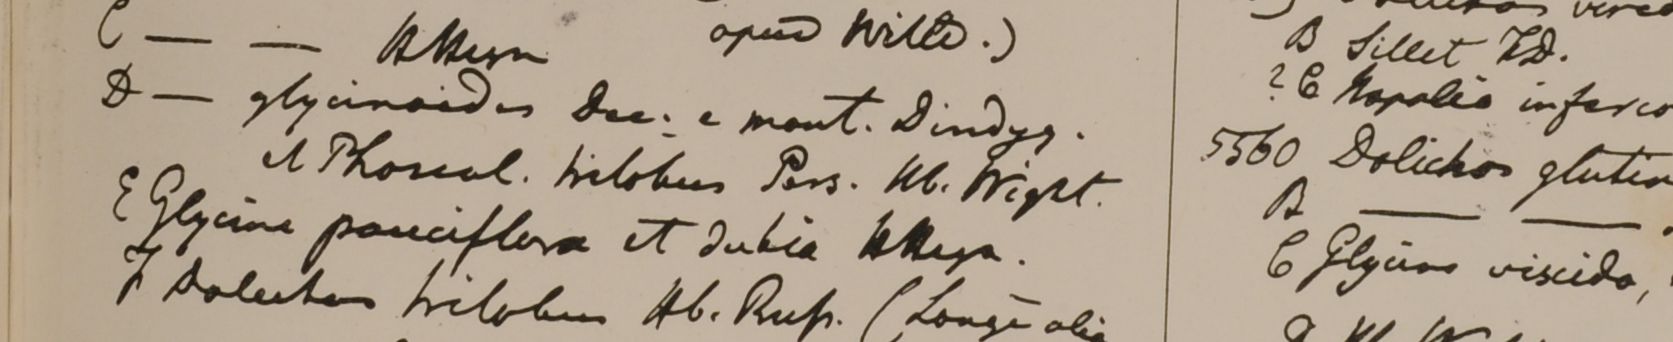 C — — H Heyn
apud Willd.)
D — glycinoides Dec. e mont. Dindyg.
et Phaseol. trilobus Pers. Hb. Wight.
E Glycine pauciflora et dubia H Heyn.
F Dolichos trilobus Hb. Ruſs. (Longe alia
B Sillet F.D.
? C Napalia inferio
5560 Dolichos glutin
B — —
C Glycine viscida,